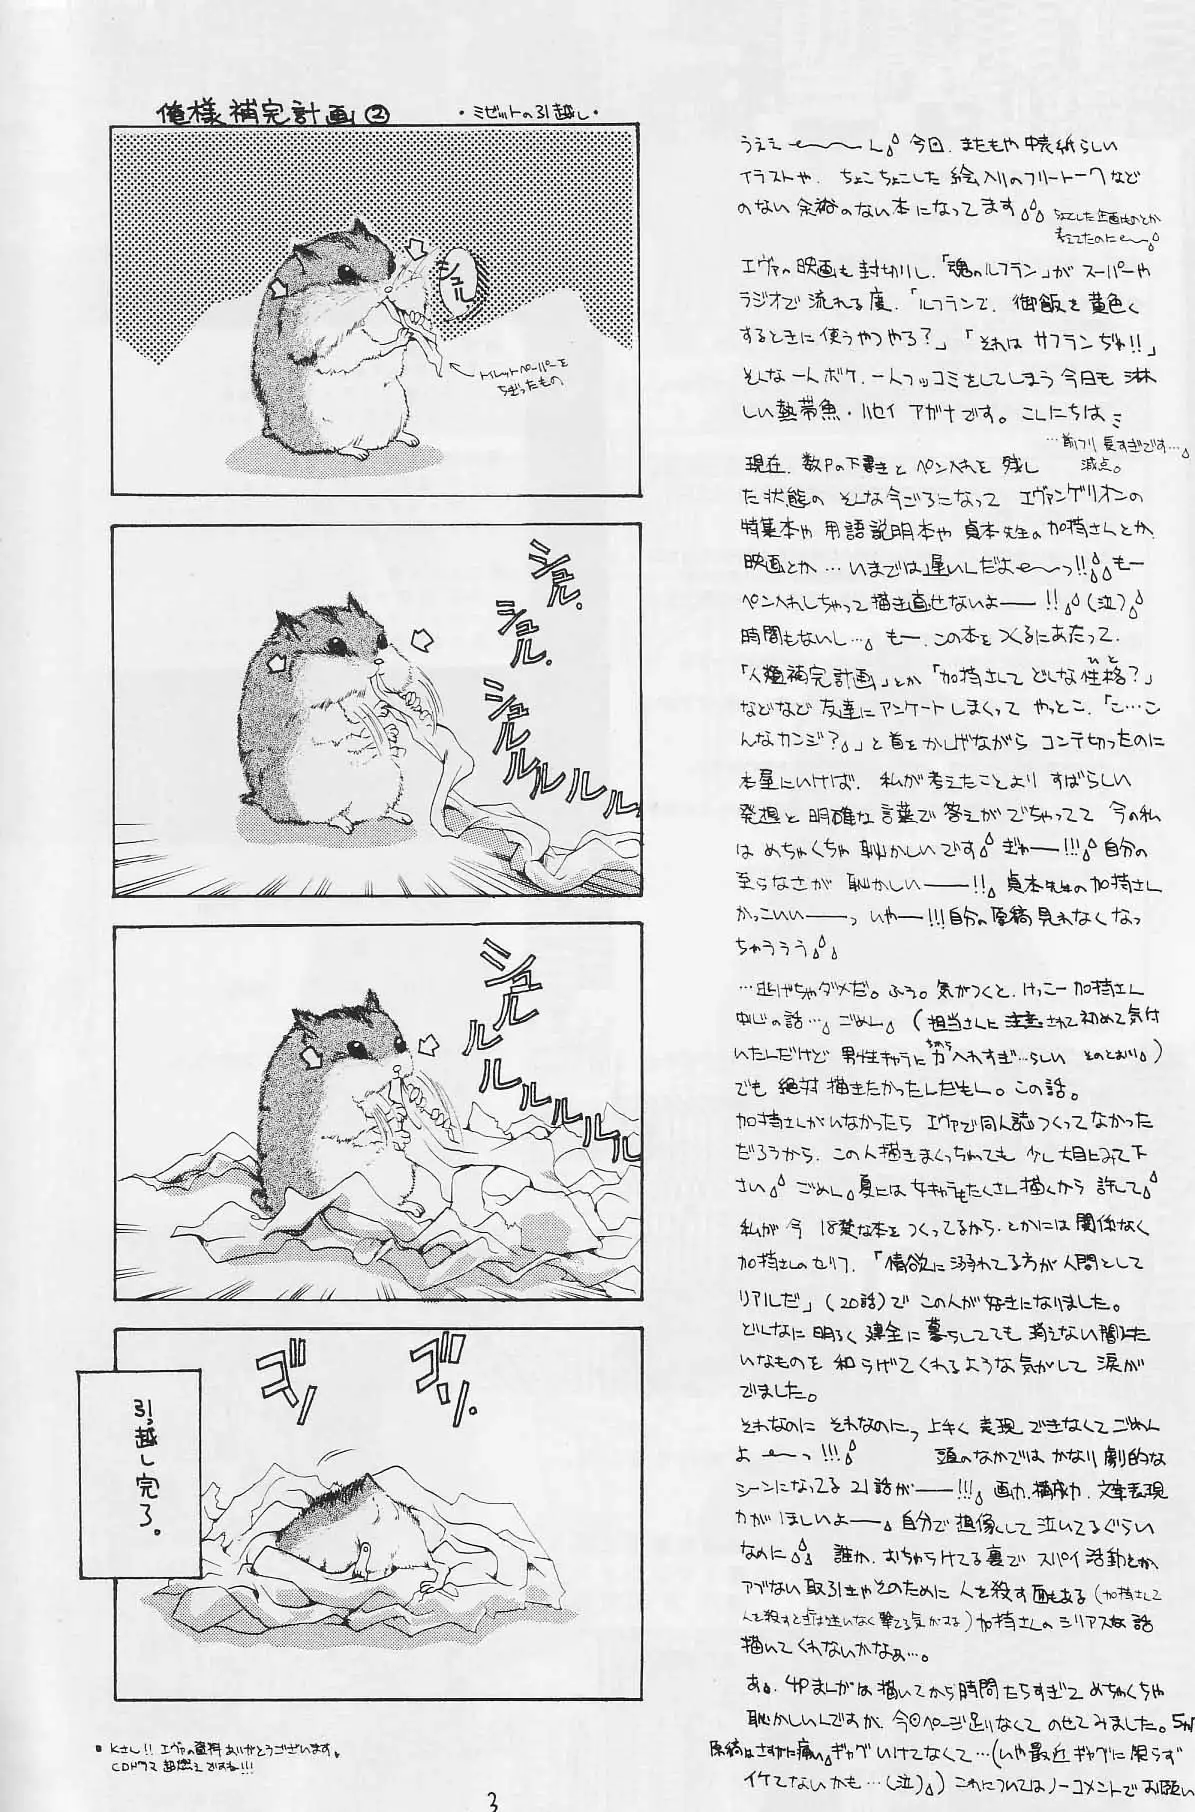 俺様補完計画②
・ミゼットの引越し・
シュル
トイレットペーパーを
ちぎったもの
シュル。
シュル。
シュルルルルル
シュルルルルルル
ゴソ
ゴソ。
引っ越し完了。
■ Kさん!! エヴァの資料ありがとうございます。
CDドラマ 超燃えですね!!!
うえぇ〜〜ん 今回、またもや中表紙らしい
イラストや、ちょこちょこした絵入りのフリートークなど
のない余裕のない本になってます
ちょこした企画ものとか
考えてたのに〜
エヴァの映画も封切りし、「魂のルフラン」がスーパーや
ラジオで流れる度、「ルフランて、御飯を黄色く
するときに使うやつやろ?」「それはサフランぢゃ!!」
そんな一人ボケ、一人ツッコミをしてしまう今日も淋
しい熱帯魚・ハセイアガナです。こんにちは
…前フリ長すぎです…
減点。
現在、数Pの下書きとペン入れを残し
た状態のそんな今ごろになってエヴァンゲリオンの
特集本や用語説明本や貞本先生の加持さんとか
映画とか…いまでは遅いんだよ〜〜っ!! もー
ペン入れしちゃって描き直せないよ――!!(泣)
時間もないし… もー、この本をつくるにあたって、
「人類補完計画」とか「加持さんてどんな性格?」
ひと
などなど友達にアンケートしまくってやっとこ、「こ…こ
んなカンジ?」と首をかしげながらコンテ切ったのに
本屋にいけば、私が考えたことよりすばらしい
発想と明確な言葉で答えがでちゃってて今の私
はめちゃくちゃ恥かしいです ぎゃー!!! 自分の
至らなさが恥かしい――!! 貞本先生の加持さん
かっこいい――っ いやー!!!自分の原稿見れなくなっ
ちゃううう
…逃げちゃダメだ。ふう。気がつくと、けっこー加持さん
中心の話… ごめん (担当さんに注意されて初めて気付
いたんだけど男性キャラに力入れすぎ…らしい そのとおり)
ちから
でも絶対描きたかったんだもん。この話。
加持さんがいなかったらエヴァで同人誌つくってなかった
だろうから、この人描きまくっちゃても少し大目にみて下
さい ごめん 夏には女キャラもたくさん描くから許して
私が今18禁な本をつくってるから、とかには関係なく
加持さんのセリフ、「情欲に溺れてる方が人間として
リアルだ」(20話)でこの人が好きになりました。
どんなに明るく健全に暮らしてても消えない闇みた
いなものを和らげてくれるような気がして涙が
でました。
それなのにそれなのにっ上手く表現できなくてごめん
よ〜っ!!! 頭のなかではかなり劇的な
シーンになってる21話が――!!! 画力、構成力、文章表現
力がほしいよ― 自分で想像して泣いてるぐらい
なのに 誰か、おちゃらけてる裏でスパイ活動とか
アブない取引きやそのために人を殺す面もある(加持さんて
人を殺すときは迷いなく撃てる気がする)加持さんのシリアスな話
描いてくれないかなぁ…。
あ、4Pまんがは描いてから時間たちすぎてめちゃくちゃ
恥かしいんですが、今回ページ足りなくてのせてみました。5ヶ月
原稿はさすがに痛い ギャグいけてなくて…(いや最近ギャグに限らず
イケてないかも…(泣)) これについてはノーコメントでお願い
3